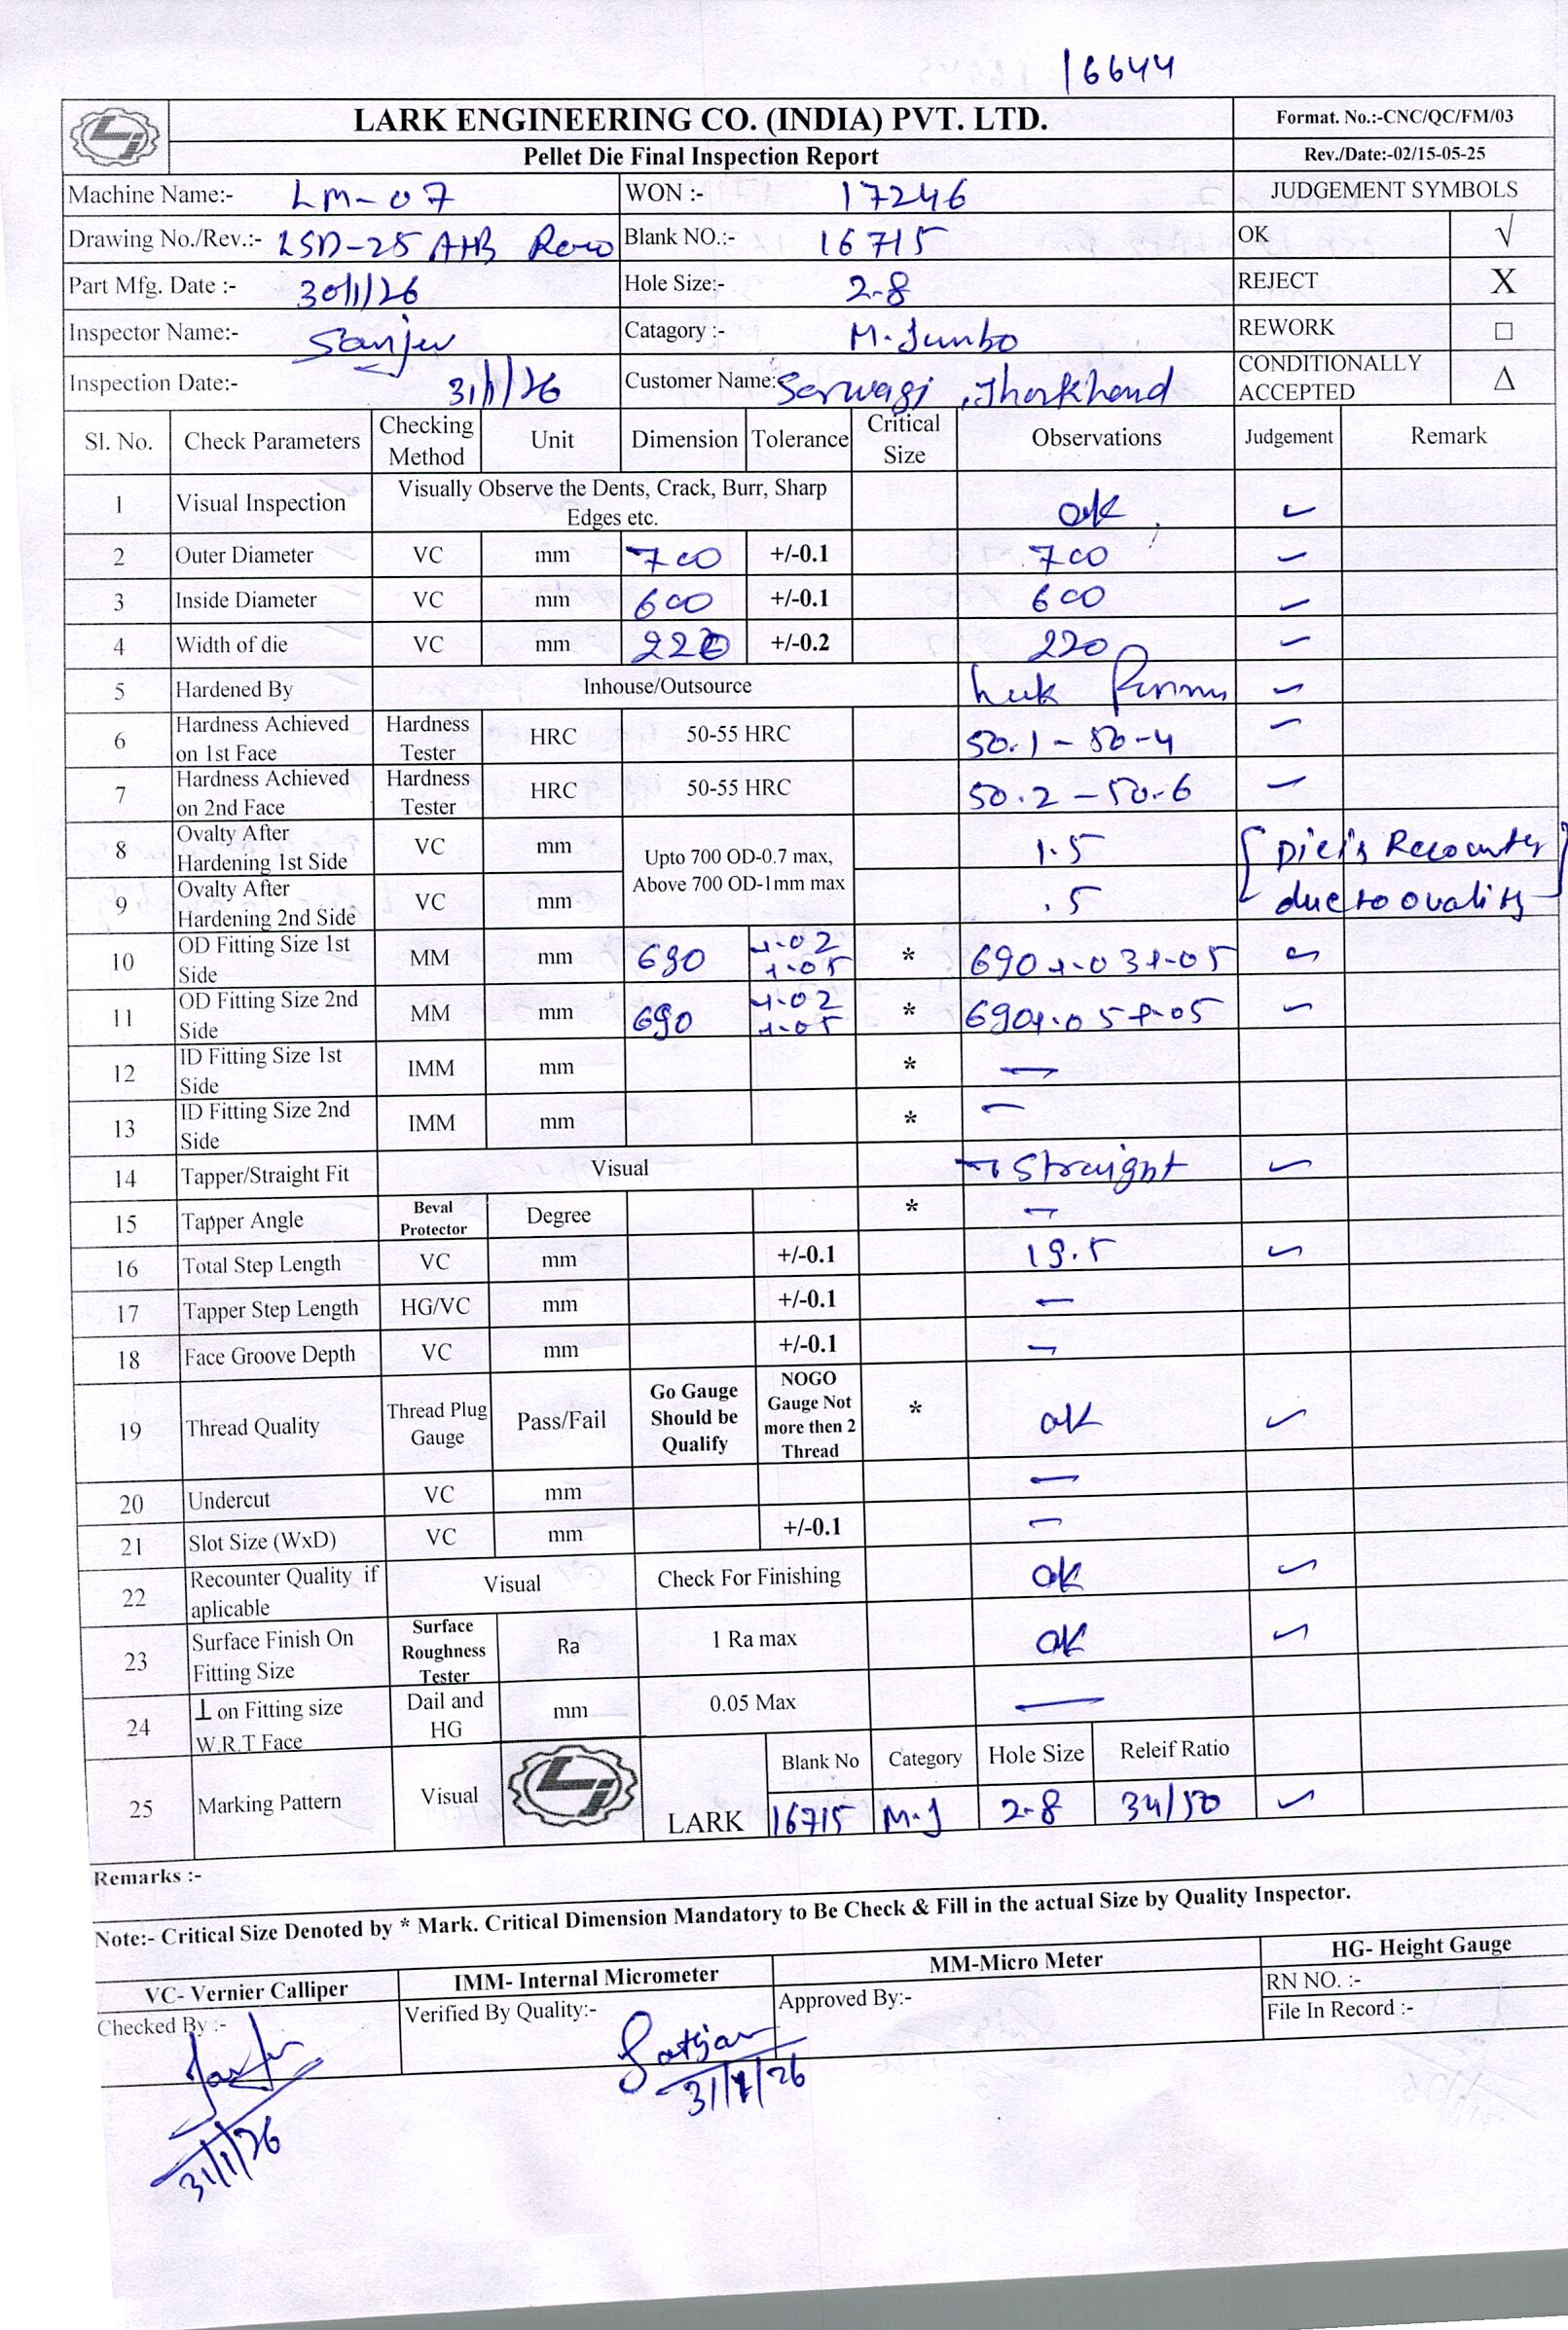 16644
LARK ENGINEERING CO. (INDIA) PVT. LTD.
Format. No.:-CNC/QC/FM/03
Pellet Die Final Inspection Report
Rev./Date:-02/15-05-25
Machine Name:- LM-07 WON :- 17246 JUDGEMENT SYMBOLS
Drawing No./Rev.:- LSD-25 AHB Rev0 Blank NO.:- 16715 OK √
Part Mfg. Date :- 30/1/26 Hole Size:- 2.8 REJECT X
Inspector Name:- Sanjev Catagory :- M.Jumbo REWORK □
Inspection Date:- 31/1/26 Customer Name: Sarwagi, Jharkhand CONDITIONALLY ACCEPTED Δ
Sl. No. Check Parameters Checking Method Unit Dimension Tolerance Critical Size Observations Judgement Remark
1 Visual Inspection Visually Observe the Dents, Crack, Burr, Sharp Edges etc. ok ✓
2 Outer Diameter VC mm 700 +/-0.1 700 ✓
3 Inside Diameter VC mm 600 +/-0.1 600 ✓
4 Width of die VC mm 220 +/-0.2 220 ✓
5 Hardened By Inhouse/Outsource ✓
6 Hardness Achieved on 1st Face Hardness Tester HRC 50-55 HRC 50.1 - 50-4 ✓
7 Hardness Achieved on 2nd Face Hardness Tester HRC 50-55 HRC 50.2 - 50.6 ✓
8 Ovalty After Hardening 1st Side VC mm Upto 700 OD-0.7 max, Above 700 OD-1mm max 1.5 Die is Recounter
9 Ovalty After Hardening 2nd Side VC mm .5 due to ovality
10 OD Fitting Size 1st Side MM mm 690 +.02 +.05 * 690+.03+.05 ✓
11 OD Fitting Size 2nd Side MM mm 690 +.02 +.05 * 690+.05+.05 ✓
12 ID Fitting Size 1st Side IMM mm * —
13 ID Fitting Size 2nd Side IMM mm * —
14 Tapper/Straight Fit Visual Straight ✓
15 Tapper Angle Beval Protector Degree * —
16 Total Step Length VC mm +/-0.1 19.5 ✓
17 Tapper Step Length HG/VC mm +/-0.1 —
18 Face Groove Depth VC mm +/-0.1 —
19 Thread Quality Thread Plug Gauge Pass/Fail Go Gauge Should be Qualify NOGO Gauge Not more then 2 Thread * ok ✓
20 Undercut VC mm —
21 Slot Size (WxD) VC mm +/-0.1 —
22 Recounter Quality if aplicable Visual Check For Finishing ok ✓
23 Surface Finish On Fitting Size Surface Roughness Tester Ra 1 Ra max ok ✓
24 ⊥ on Fitting size W.R.T Face Dail and HG mm 0.05 Max —
25 Marking Pattern Visual LARK Blank No Category Hole Size Releif Ratio
16715 M.J 2-8 34/50 ✓
Remarks :-
Note:- Critical Size Denoted by * Mark. Critical Dimension Mandatory to Be Check & Fill in the actual Size by Quality Inspector.
VC- Vernier Calliper IMM- Internal Micrometer MM-Micro Meter HG- Height Gauge
Checked By :- Verified By Quality:- Approved By:- RN NO. :-
File In Record :-
31/1/26
31/1/26